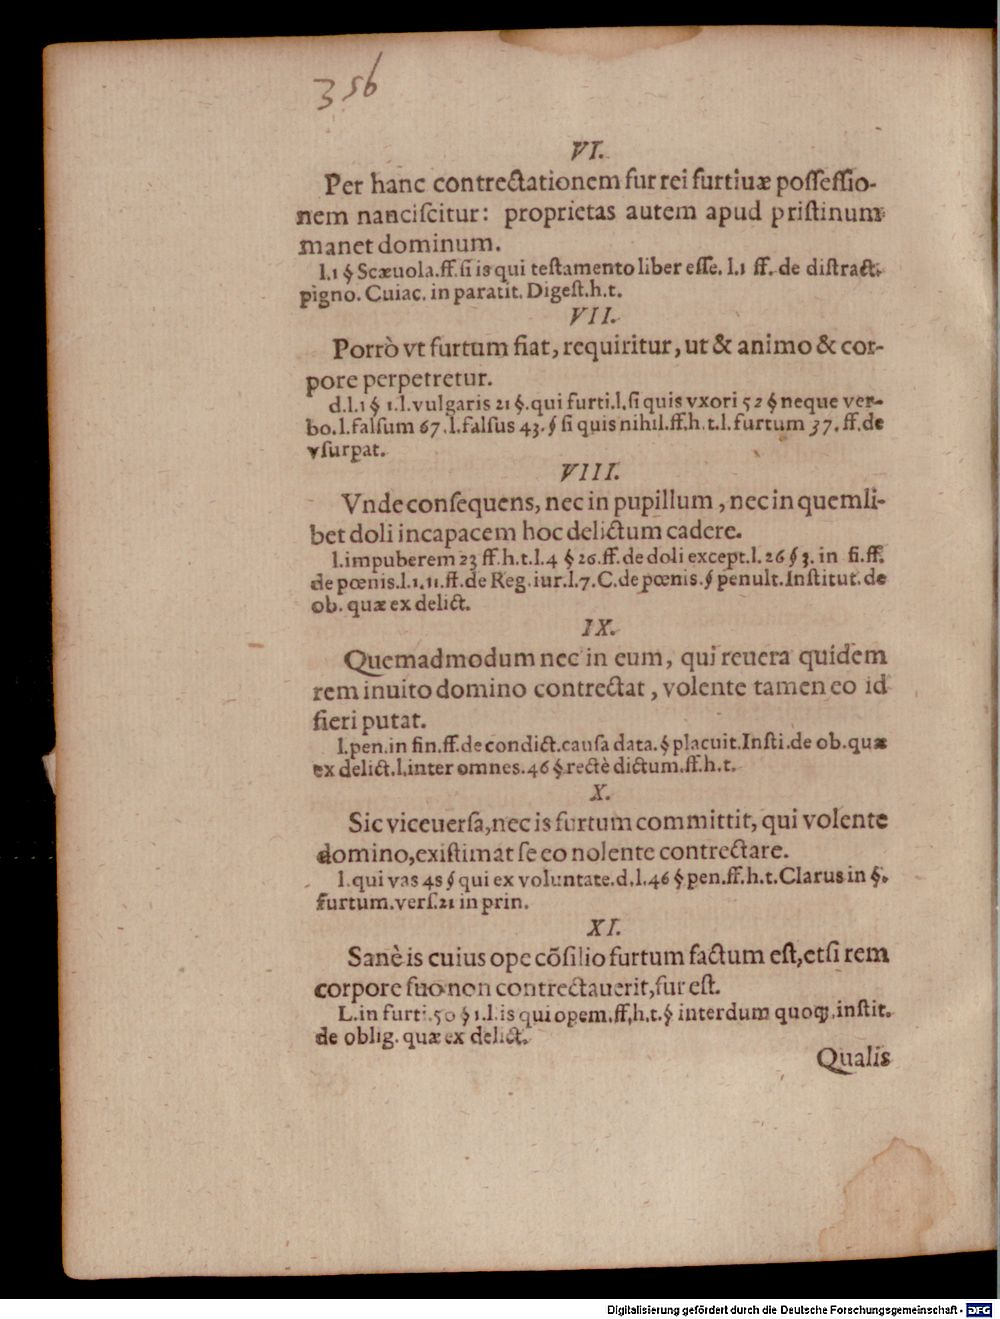 356
VI.
Per hanc contrectationem fur rei furtiuæ possessio-
nem nanciscitur: proprietas autem apud pristinum
manet dominum.
l.1 § Scæuola.ff.si is qui testamento liber esse. l.1 ff. de distract.
pigno. Cuiac. in paratit. Digest.h.t.
VII.
Porrò vt furtum fiat, requiritur, ut & animo & cor-
pore perpetretur.
d.l.1 § 1.l.vulgaris 21 §.qui furti.l.si quis vxori 52 § neque ver-
bo.l.falsum 67.l.falsus 43.§ si quis nihil.ff.h.t.l.furtum 37.ff.de
vsurpat.
VIII.
Vnde consequens, nec in pupillum, nec in quemli-
bet doli incapacem hoc delictum cadere.
l.impuberem 23 ff.h.t.l.4 § 26.ff.de doli except.l.26 § 3. in fi.ff.
de pœnis.l.1.11.ff.de Reg.iur.l.7.C.de pœnis.§ penult.Institut.de
ob. quæ ex delict.
IX.
Quemadmodum nec in eum, qui reuera quidem
rem inuito domino contrectat, volente tamen eo id
fieri putat.
l.pen.in fin.ff.de condict.causa data.§ placuit.Insti.de ob.quæ
ex delict.l.inter omnes.46 § rectè dictum.ff.h.t.
X.
Sic viceuersa, nec is furtum committit, qui volente
domino, existimat se eo nolente contrectare.
l.qui vas 48 § qui ex voluntate.d.l.46 § pen.ff.h.t.Clarus in §.
furtum.vers.21 in prin.
XI.
Sanè is cuius ope cõsilio furtum factum est, etsi rem
corpore suo non contrectauerit, fur est.
L.in furti.50 § 1.l.is qui opem.ff.h.t.§ interdum quoqꝫ.instit.
de oblig. quæ ex delict.
Qualis
Digitalisierung gefördert durch die Deutsche Forschungsgemeinschaft - DFG